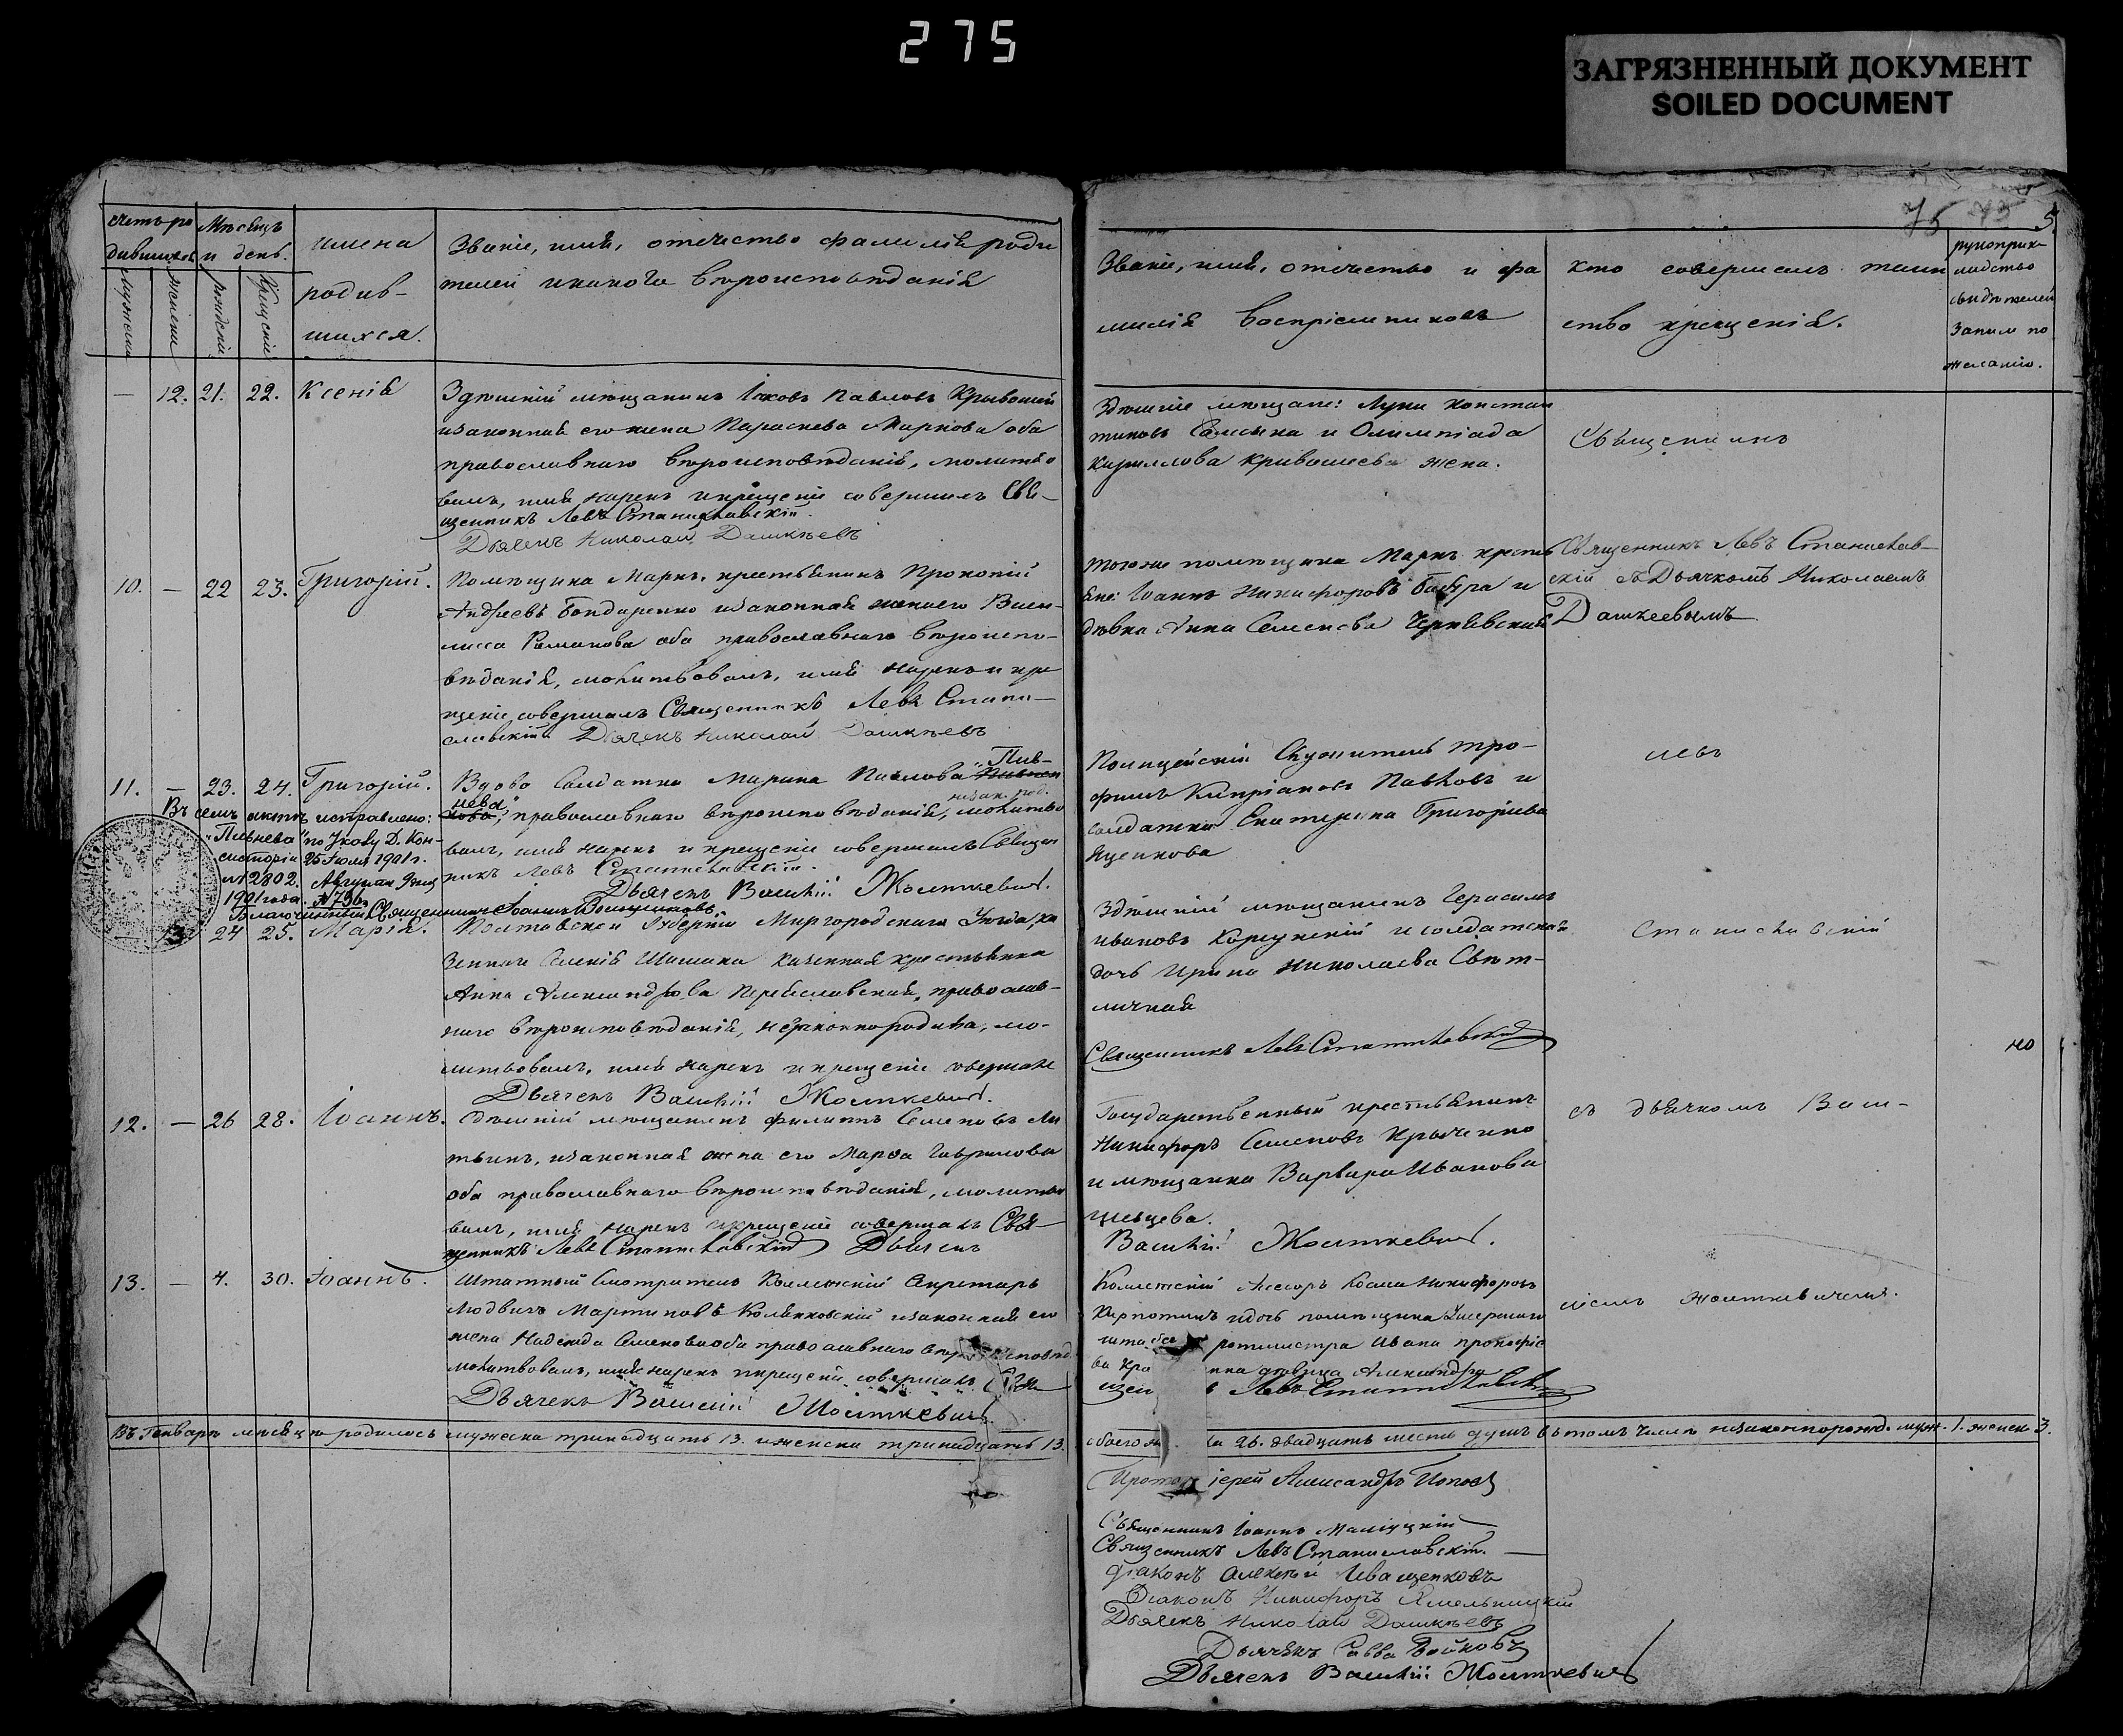 275
ЗАГРЯЗНЕННЫЙ ДОКУМЕНТ
SOILED DOCUMENT
75
5
Счетъ ро
дившихся
Мѣсяцъ
и день.
имена
родив-
шихся.
Званіе, имя, отечество фамилія роди
телей и какого вѣроисповѣданія
Званіе, имя, отечество и фа
милія воспріемниковъ
кто совершалъ таин
ство крещенія.
рукоприк-
ладство
свидѣтелей
записи по
желанію.
— 12. 21. 22. Ксенія
Здѣшній мѣщанинъ Іаковъ Павловъ Крывошей
и законная его жена Параскева Маркова оба
православнаго вѣроисповѣданія, молитво
валъ, имя нарекъ и крещеніе совершилъ Свя-
щенникъ Левъ Станиславскій.
Дьячекъ Николай Дашкѣевъ
Здѣшніе мѣщане: Лука Констан
тиновъ и Олимпіада
Кириллова Кривошеева жена.
Священникъ
10. — 22 23. Григорій.
Помѣщика Марк. крестьянинъ Прокопій
Андреевъ Бондаренко и законная жена его Васи-
лисса Романова оба православнаго вѣроиспо-
вѣданія, молитвовалъ, имя нарекъ и кре
щеніе совершалъ Священникъ Левъ Стани-
славскій Дьячекъ Николай Дашкѣевъ
того же помѣщика Марк. кресть
яне: Іоаннъ Никифоровъ и
дѣвка Анна Семенова
Священникъ Левъ Станислав-
скій съ Дьячкомъ Николаемъ
Дашкеевымъ
11. — 23. 24. Григорій.
Вдова Солдатка Марина Павлова „Пив-
нева", православнаго вѣроисповѣданія, молитво
валъ, имя нарекъ и крещеніе совершалъ Священ
никъ Левъ Станиславскій.
Дьячекъ Василій Жолткевич.
Въ семъ актѣ исправлено:
„Пивнева" по Указу Д. Кон-
систоріи 25 Іюля 1901 г.
№ 12802. Августа 9 дня
1901 года № 796.
Благочинный Священникъ Іоаннъ
Полицейскій Служитель Тро-
фимъ Кипріановъ Павловъ и
солдатка Екатерина Григорьева
Яценкова
Левъ
— 13 24 25. Марія.
Полтавской Губерніи Миргородскаго Уѣзда, ка
зеннаго селенія Шишака казенная крестьянка
Анна Александрова Переяславская, православ-
наго вѣроисповѣданія, незаконнородила, мо-
литвовалъ, имя нарекъ и крещеніе совершалъ
Дьячекъ Василій Жолткевич.
Здѣшній мѣщанинъ Герасимъ
Ивановъ Корсунскій и солдатская
дочь Ирина Николаева Свѣт-
личная
Священникъ Левъ Станиславскій
Станиславскій
но
12. — 26 28. Іоаннъ.
Здѣшній мѣщанинъ Филиппъ Семеновъ Ли
твинъ, и законная жена его Марѳа Гаврилова
оба православнаго вѣроисповѣданія, молитво
валъ, имя нарекъ и крещеніе совершалъ Свя-
щенникъ Левъ Станиславскій Дьячекъ
Государственный крестьянинъ
Никифоръ Семеновъ
и мѣщанка Варвара Иванова
Шевцева.
Василій Жолткевич.
съ дьячкомъ Васи-
13. — 4. 30. Іоаннъ.
Штатный Смотритель Коллежскій Секретарь
Людвигъ Мартиновъ и законная его
жена Надежда Семенова оба православнаго
молитвовалъ, имя нарекъ и крещеніе совершалъ Свя
Дьячекъ Василій Жолткевич
Коллежскій Асесоръ Косма Никифоровъ
и дочь помѣщика
ротмистра Ивана
дѣвица Александра
Левъ Станиславскій
ліемъ Жолткевичемъ.
Въ Генварѣ мѣсяцѣ родилось мужеска тринадцать 13. и женска тринадцать 13.
обоего 26. двадцать шесть душъ въ томъ числѣ незаконнорожд. муж. 1. женск. 3.
Протоіерей Александръ Поповъ
Священникъ Іоаннъ
Священникъ Левъ Станиславскій.
Діаконъ Алексѣй Иващенковъ
Діаконъ Никифоръ
Дьячекъ Николай Дашкѣевъ
Дьячекъ Савва Бойковъ
Дьячекъ Василій Жолткевич